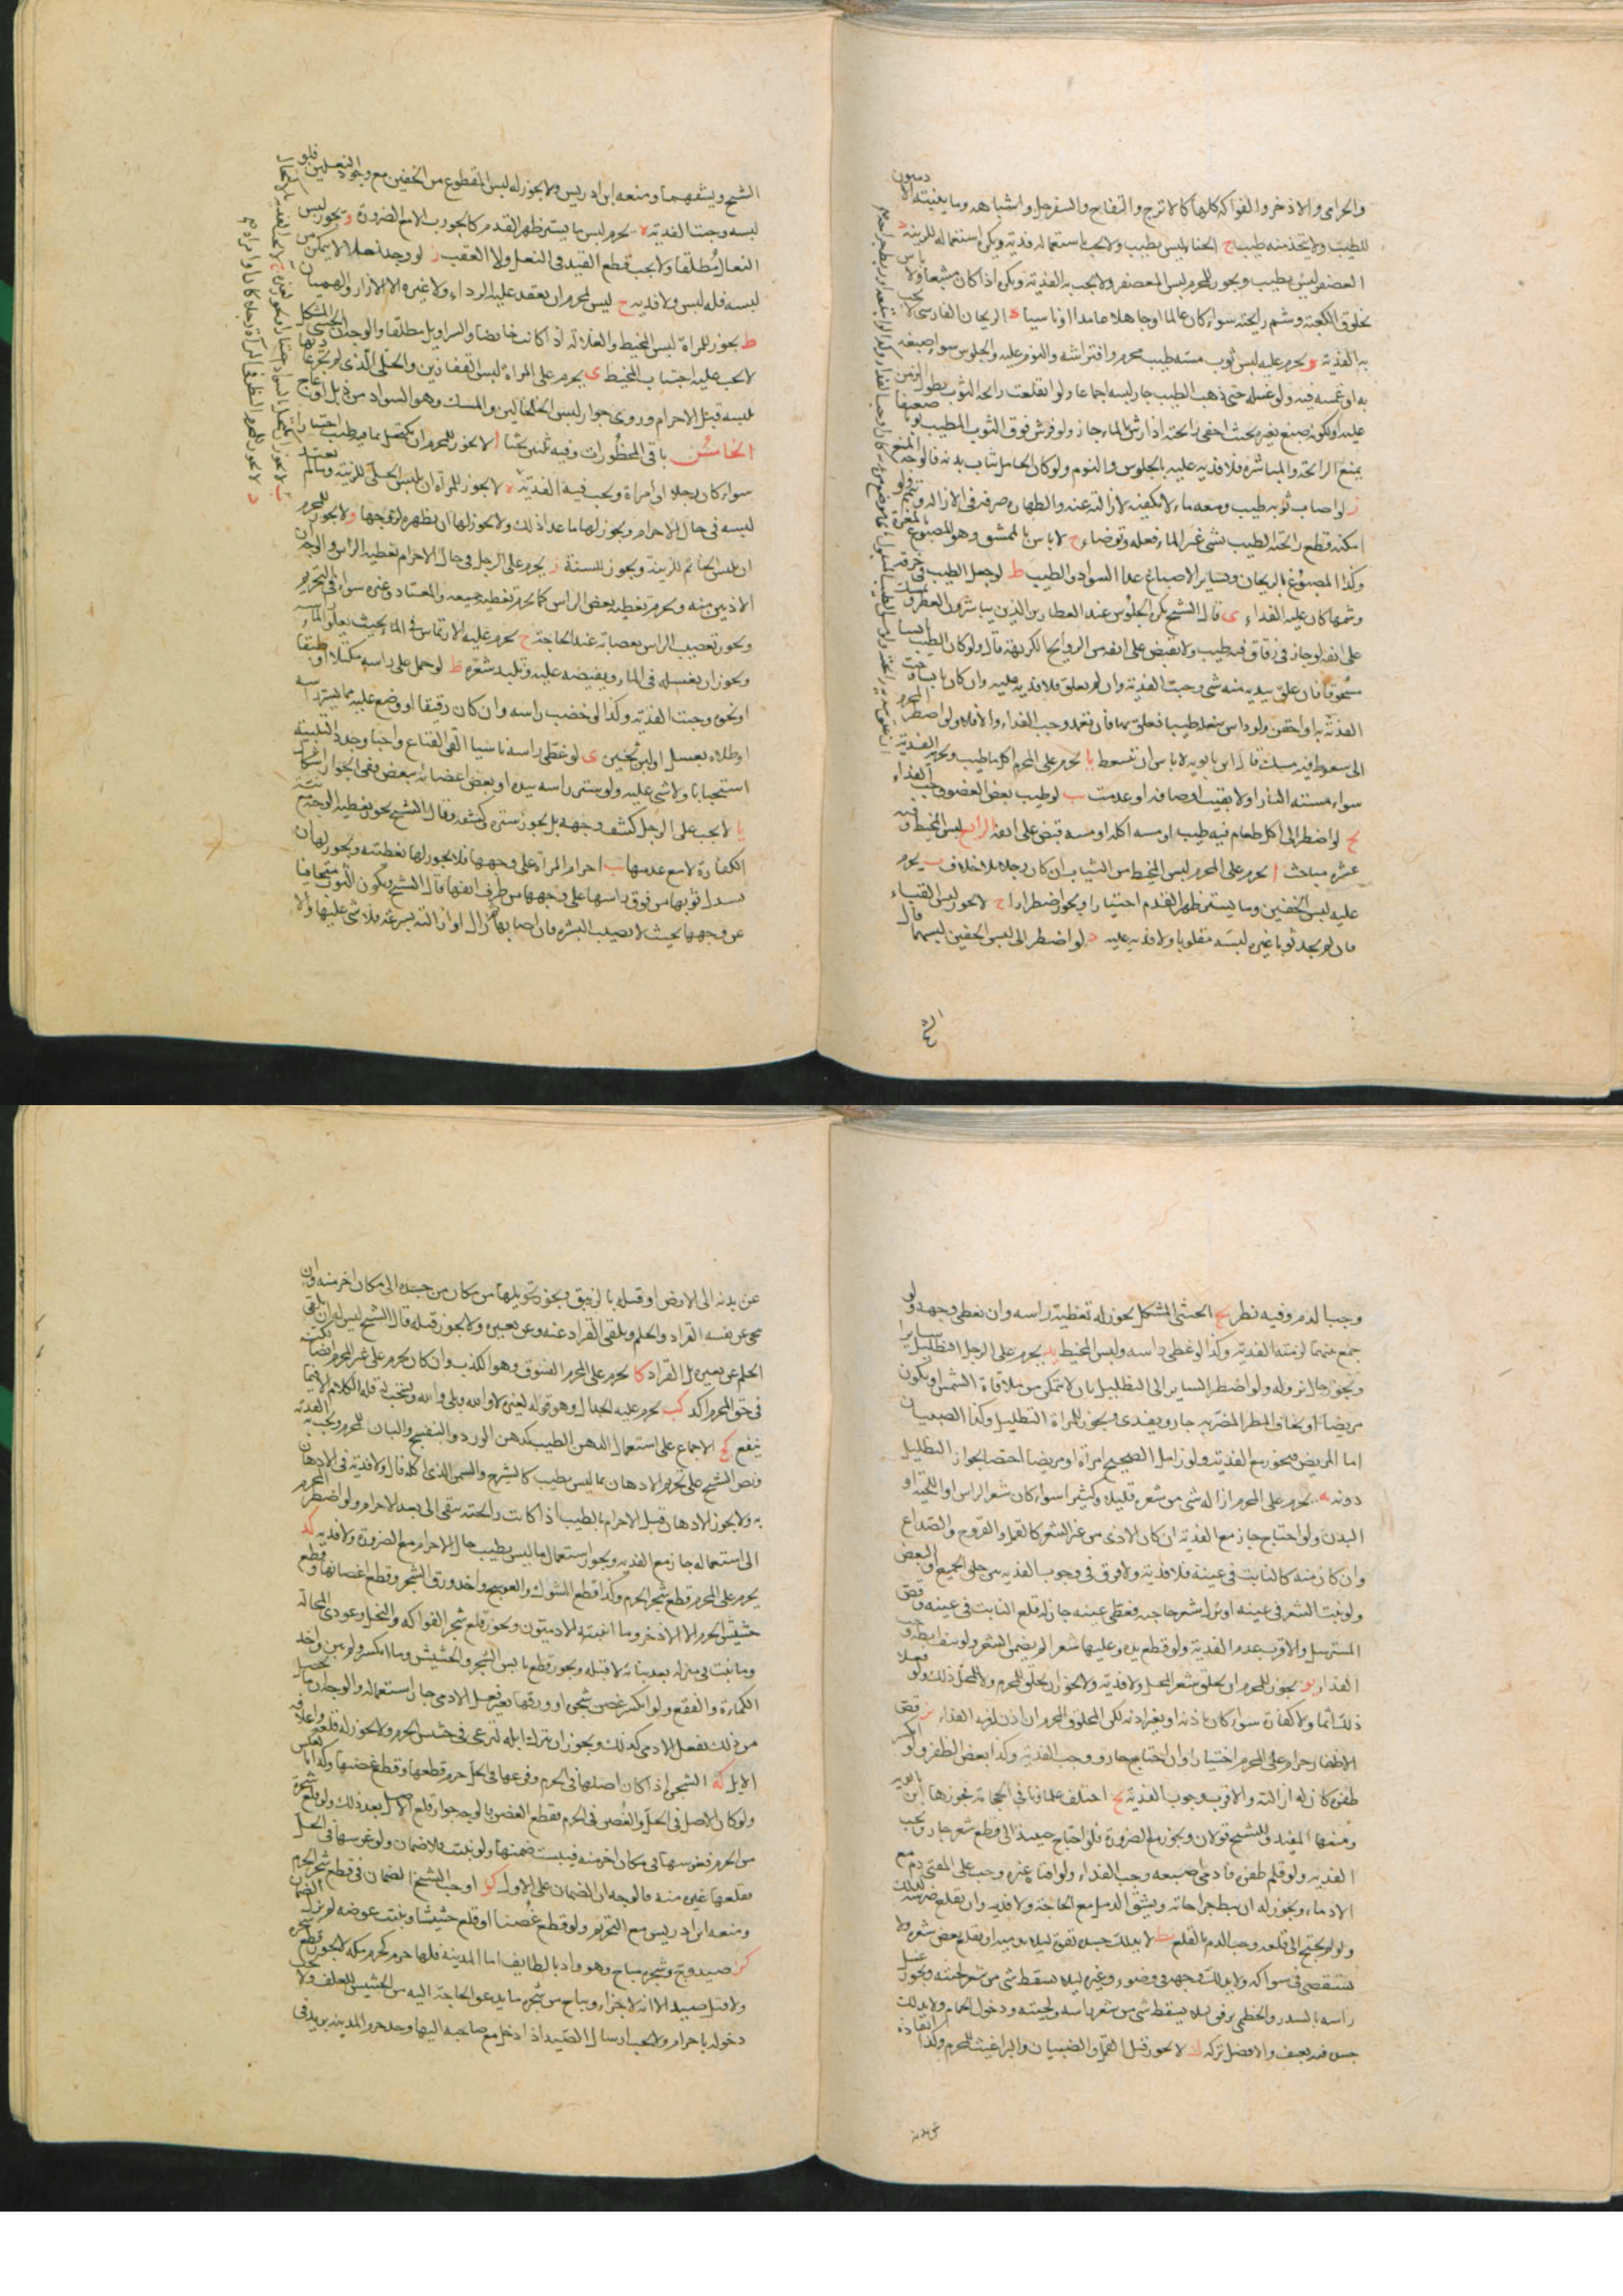 والخزامى والاذخر والفواكه كلها كالاترج والتفاح والسفرجل واشباهه وما ينبته الادميون
للطيب ولا يتخذ منه طيب ج الحنا ليس بطيب ولا يجب باستعماله فدية ويكره استعماله للزينة د
العصفر ليس بطيب ويجوز للمحرم لبس المعصفر ولا يجب به الفدية ويكره اذا كان مشبعا ولا باس
بخلوق الكعبة وشم رايحته سواء كان عالما او جاهلا عامدا او ناسيا ه الريحان الفارسي لا يجب
به الفدية و يحرم عليه لبس ثوب مسه طيب محرم وافتراشه والنوم عليه والجلوس سواء صبغه
به او غمسه فيه ولو غسله حتى ذهب الطيب جاز لبسه اجماعا ولو انقلعت رايحة الثوب بطول الزمن
عليه او لكونه صبغ بغيره بحيث اختفى رايحته اذا رش بالماء جاز ولو فرش فوق الثوب المطيب ثوبا صفيقا
يمنع الرايحة والمباشرة فلا فدية عليه بالجلوس والنوم ولو كان الحايل ثياب بدنه فالوجه المنع
ز لو اصاب ثوبه طيب ومعه ماء لا يكفيه لازالته عنه والطهارة صرفه في الازالة وتيمم ولو
امكنه قطع رايحة الطيب بشيء غير الماء فعله وتوضاء ح لا باس بالممشق وهو المصبوغ بالمغرة
وكذا المصبوغ بالريحان وبساير الاصباغ عدا السواد والطيب ط لو جعل الطيب في خرقة
وشمها كان عليه الفداء ى قال الشيخ يكره الجلوس عند العطارين الذين يباشرون العطر
على انفه لو جاز في زقاق فيه طيب ولا يقبض على انفه من الروايح الكريهة قال ولو كان الطيب يابسا
مسحوقا فان علق بيديه منه شيء وجبت الفدية وان لم يعلق فلا فدية عليه وان كان يابسا
الفدية به او احتقن ولو داس بنعله طيبا فعلق بها فان تعمد وجب الفداء والا فلا ولو اضطر المحرم
الى سعوط فيه مسك قال ابن بابويه لا باس ان تسعط يا يحرم على المحرم اكل ما طيب وتجب الفدية
سواء مسته النار او لا بقيت اوصافه او عدمت يب لو طيب بعض العضو وجب الفداء
يج لو اضطر الى اكل طعام فيه طيب او مسه اكله او مسه قبض على انفه الرابع لبس المخيط وفيه
عشرة مباحث ا يحرم على المحرم لبس المخيط من الثياب ان كان رجلا بلا خلاف ب يحرم
عليه لبس الخفين وما يستر ظهر القدم اختيارا ويجوز اضطرارا ج لا يجوز لبس القباء
فان لم يجد ثوبا غيره لبسه مقلوبا ولا فدية عليه د لو اضطر الى لبس الخفين لبسهما قال
الشيخ ويشقهما ومنعه ابن ادريس ولا يجوز له لبس المقطوع من الخفين مع وجود النعلين فلو
لبسه وجبت الفدية ه يحرم لبس ما يستر ظهر القدم كالجورب الا مع الضرورة و يجوز لبس
النعال مطلقا ولا يجب قطع القيد في النعل ولا العقب ز لو وجد نعلا لا يمكن من
لبسه فله لبس ولا فدية ح ليس لمحرم ان يعقد عليه الرداء ولا غيره الا الازار والهميان
ط يجوز للمراة لبس المخيط والغلالة اذا كانت حايضا والسراويل مطلقا والوجه ان الخنثى المشكل
لا يجب عليه اجتناب المخيط ى يحرم على المراة لبس القفازين والحلي الذي لم تجر عادتها
بلبسه قبل الاحرام وروي جواز لبس الخلخالين والمسك وهو السواد من ذبل او عاج
الخامس في باقي المحظورات وفيه ثلثون بحثا ا لا يجوز للمحرم ان يكتحل بما فيه طيب اختيارا
سواء كان رجلا او امراة ويجب فيه الفدية ه لا يجوز للمراة ان تلبس الحلي للزينة وما لم تعتد
لبسه في حال الاحرام ويجوز لها ما عدا ذلك ولا يجوز لها ان يظهره لزوجها و لا يجوز للمحرم
ان يلبس الخاتم للزينة ويجوز للسنة ز يحرم على الرجل في حال الاحرام تغطية الراس والوجه ان
الاذنين منه ويحرم تغطية بعض الراس كما يحرم تغطية جميعه والمعتاد وغيره سواء في التحريم
ويجوز تعصيب الراس بعصابة عند الحاجة ح يحرم عليه الارتماس في الماء بحيث يعلو الماء راسه
ويجوز ان يغسله في الماء ويفيضه عليه وتلبيد شعره ط لو حمل على راسه مكتلا او طبقا
او نحوه وجبت الفدية وكذا لو خضب راسه وان كان رقيقا او وضع عليه مما يستر راسه
او طلاه بعسل او لبن ثخين ى لو غطى راسه ناسيا القى القناع واجبا وجدد التلبية
استحبابا ولا شيء عليه ولو ستر راسه بيده او بعض اعضائه ببعض ففي الجواز اشكال
يا لا يجب على الرجل كشف وجهه بل يجوز ستره وكشفه وقال الشيخ يجوز تغطية الوجه مع نية
الكفارة لا مع عدمها يب احرام المراة على وجهها فلا يجوز لها تغطيته ويجوز لها ان
تسدل ثوبها من فوق راسها على وجهها من طرف انفها قال الشيخ ويكون الثوب متجافيا
عن وجهها بحيث لا يصيب البشرة فان اصابها ثم زال او ازالته بسرعة فلا شيء عليها والا
وجب الدم وفيه نظر يج الخنثى المشكل يجوز له تغطية راسه وان تغطى وجهه ولو
جمع بينهما لزمته الفدية وكذا لو غطى راسه ولبس المخيط يد يحرم على الرجل التظليل سايرا
ويجوز حال نزوله ولو اضطر الساير الى التظليل بان لا يتمكن من ملاقاة الشمس او يكون
مريضا او يخاف المطر المضر به جاز ويفدي ويجوز للمراة التظليل وكذا الصبيان
اما المريض فيجوز مع الفدية ولو زامل الصحيح امراة او مريضا اختصا بجواز التظليل
دونه يه يحرم على المحرم ازالة شيء من شعره قليله وكثيره سواء كان شعر الراس او اللحية او
البدن ولو احتاج جاز مع الفدية ان كان الاذى من غير الشعر كالقمل والقروح والصداع
وان كان منه كالنابت في عينه فلا فدية ولا فرق في وجوب الفدية بين حلق الجميع والبعض
ولو نبت الشعر في عينه او نزل شعر حاجبه فغطى عينه جاز له قلع النابت في عينه وقص
المسترسل والاقرب عدم الفدية ولو قطع يده وعليها شعر لم يضمن الشعر ولو نتف ابطه وجب
الفداء يو يجوز للمحرم ان يحلق شعر المحل ولا فدية ولا يجوز ان يحلق للمحرم ولا للمحل ذلك ولو فعلا
ذلك اثما ولا كفارة سواء كان باذنه او بغير اذنه لكن المحلوق المحرم ان اذن لزمه الفداء يز قص
الاظفار حرام على المحرم اختيارا وان احتاج جاز ووجب الفدية وكذا بعض الظفر ولو انكسر
ظفره كان له ازالته والاقرب وجوب الفدية يح اختلف علماؤنا في الحجامة فجوزها ابن بابويه
ومنعها المفيد وللشيخ قولان ويجوز مع الضرورة فلو احتاج حينئذ الى قطع شعر جاز ويجب
الفدية ولو قلم ظفره فادمى اصبعه وجب الفداء ولو افتاه غيره وجب على المفتي دم مع
الادماء ويجوز له ان يبط جراحاته ويشق الدمل مع الحاجة ولا فدية وان يقلع ضرسه كذلك
ولو لم يحتج الى قلعه وجب الدم بالقلع يط لا يدلك جسده بقوة ليلا يدميه او يقلع بعض شعره ولا
يستقصي في سواكه ولا يدلك وجهه في وضوء وغيره ليلا يسقط شيء من شعر لحيته ويجوز غسل
راسه بالسدر والخطمي برفق ليلا يسقط شيء من شعر راسه ولحيته ودخول الحمام ولا يدلك
جسده فيه بعنف والافضل تركه ك لا يجوز قتل القمل والصيبان والبراغيث للمحرم وكذا القاؤه
عن بدنه الى الارض او قتله بالزيبق ويجوز تحويلها من مكان من جسده الى مكان اخر منه وان
ينحي عن نفسه القراد والحلم ويلقى القراد عنه وعن بعيره ولا يجوز قتله قال الشيخ ليس له ان يلقي
الحلم عن بعيره بل القراد كا يحرم على المحرم الفسوق وهو الكذب وان كان يحرم على غير المحرم ايضا لكنه
في حق المحرم اكد كب يحرم عليه الجدال وهو قوله لغيره لا والله وبلى والله ويستحب له قلة الكلام الا فيما
ينفع كج الاجماع على استعمال الدهن الطيب كدهن الورد والبنفسج والبان للمحرم ويجب به الفدية
ونص الشيخ على تحريم الادهان بما ليس بطيب كالشيرج والسمن الذي اكله قال ولا فدية في الادهان
به ولا يجوز الادهان قبل الاحرام بالطيب اذا كانت رايحته تبقى الى بعد الاحرام ولو اضطر المحرم
الى استعماله جاز مع الفدية ويجوز استعمال ما ليس بطيب حال الاحرام مع الضرورة ولا فدية كد
يحرم على المحرم قطع شجر الحرم وكذا قطع الشوك والعوسج واخذ ورق الشجر وقطع اغصانها وقطع
حشيش الحرم الا الاذخر وما انبته الادميون ويجوز قلع شجر الفواكه والنخل وعودي المحالة
وما نبت في منزله بعد بنائه لا قبله ويجوز قطع يابس الشجر والحشيش وما انكسر ولم يبن واخذ
الكماة والفقع ولو انكسر غصن شجرة او ورقها بغير فعل الادمي جاز استعماله والوجه ان ما يحصل
من ذلك بفعل الادمي كذلك ويجوز ان يترك ابله لترعى في حشيش الحرم ولا يجوز له قلعه واعلافه
الابل كه الشجرة اذا كان اصلها في الحرم وفرعها في الحل حرم قطعها وقطع غصنها وكذا بالعكس
ولو كان الاصل في الحل والغصن في الحرم فقطع الغصن فالوجه جواز قلع الاصل بعد ذلك ولو قلع شجرة
من الحرم فغرسها في مكان اخر منه فيبست ضمنها ولو نبتت فلا ضمان ولو غرسها في الحل
فقلعها غيره منه فالوجه ان الضمان على الاول كو اوجب الشيخ الضمان في قطع شجر الحرم
ومنعه ابن ادريس مع التحريم ولو قطع غصنا او قلع حشيشا ونبت عوضه لم يزل الضمان
كز صيد وج وشجره مباح وهو واد بالطايف اما المدينة فلها حرم كحرم مكة لا يجوز قطع شجره
ولا قتل صيده الا انه لا جزاء ويباح من شجره ما يدعو الحاجة اليه من الحشيش للعلف ولا يجب
دخوله باحرام ولا يجب ارسال الصيد اذا ادخل مع صاحبه اليها وحد حرم المدينة بريد في